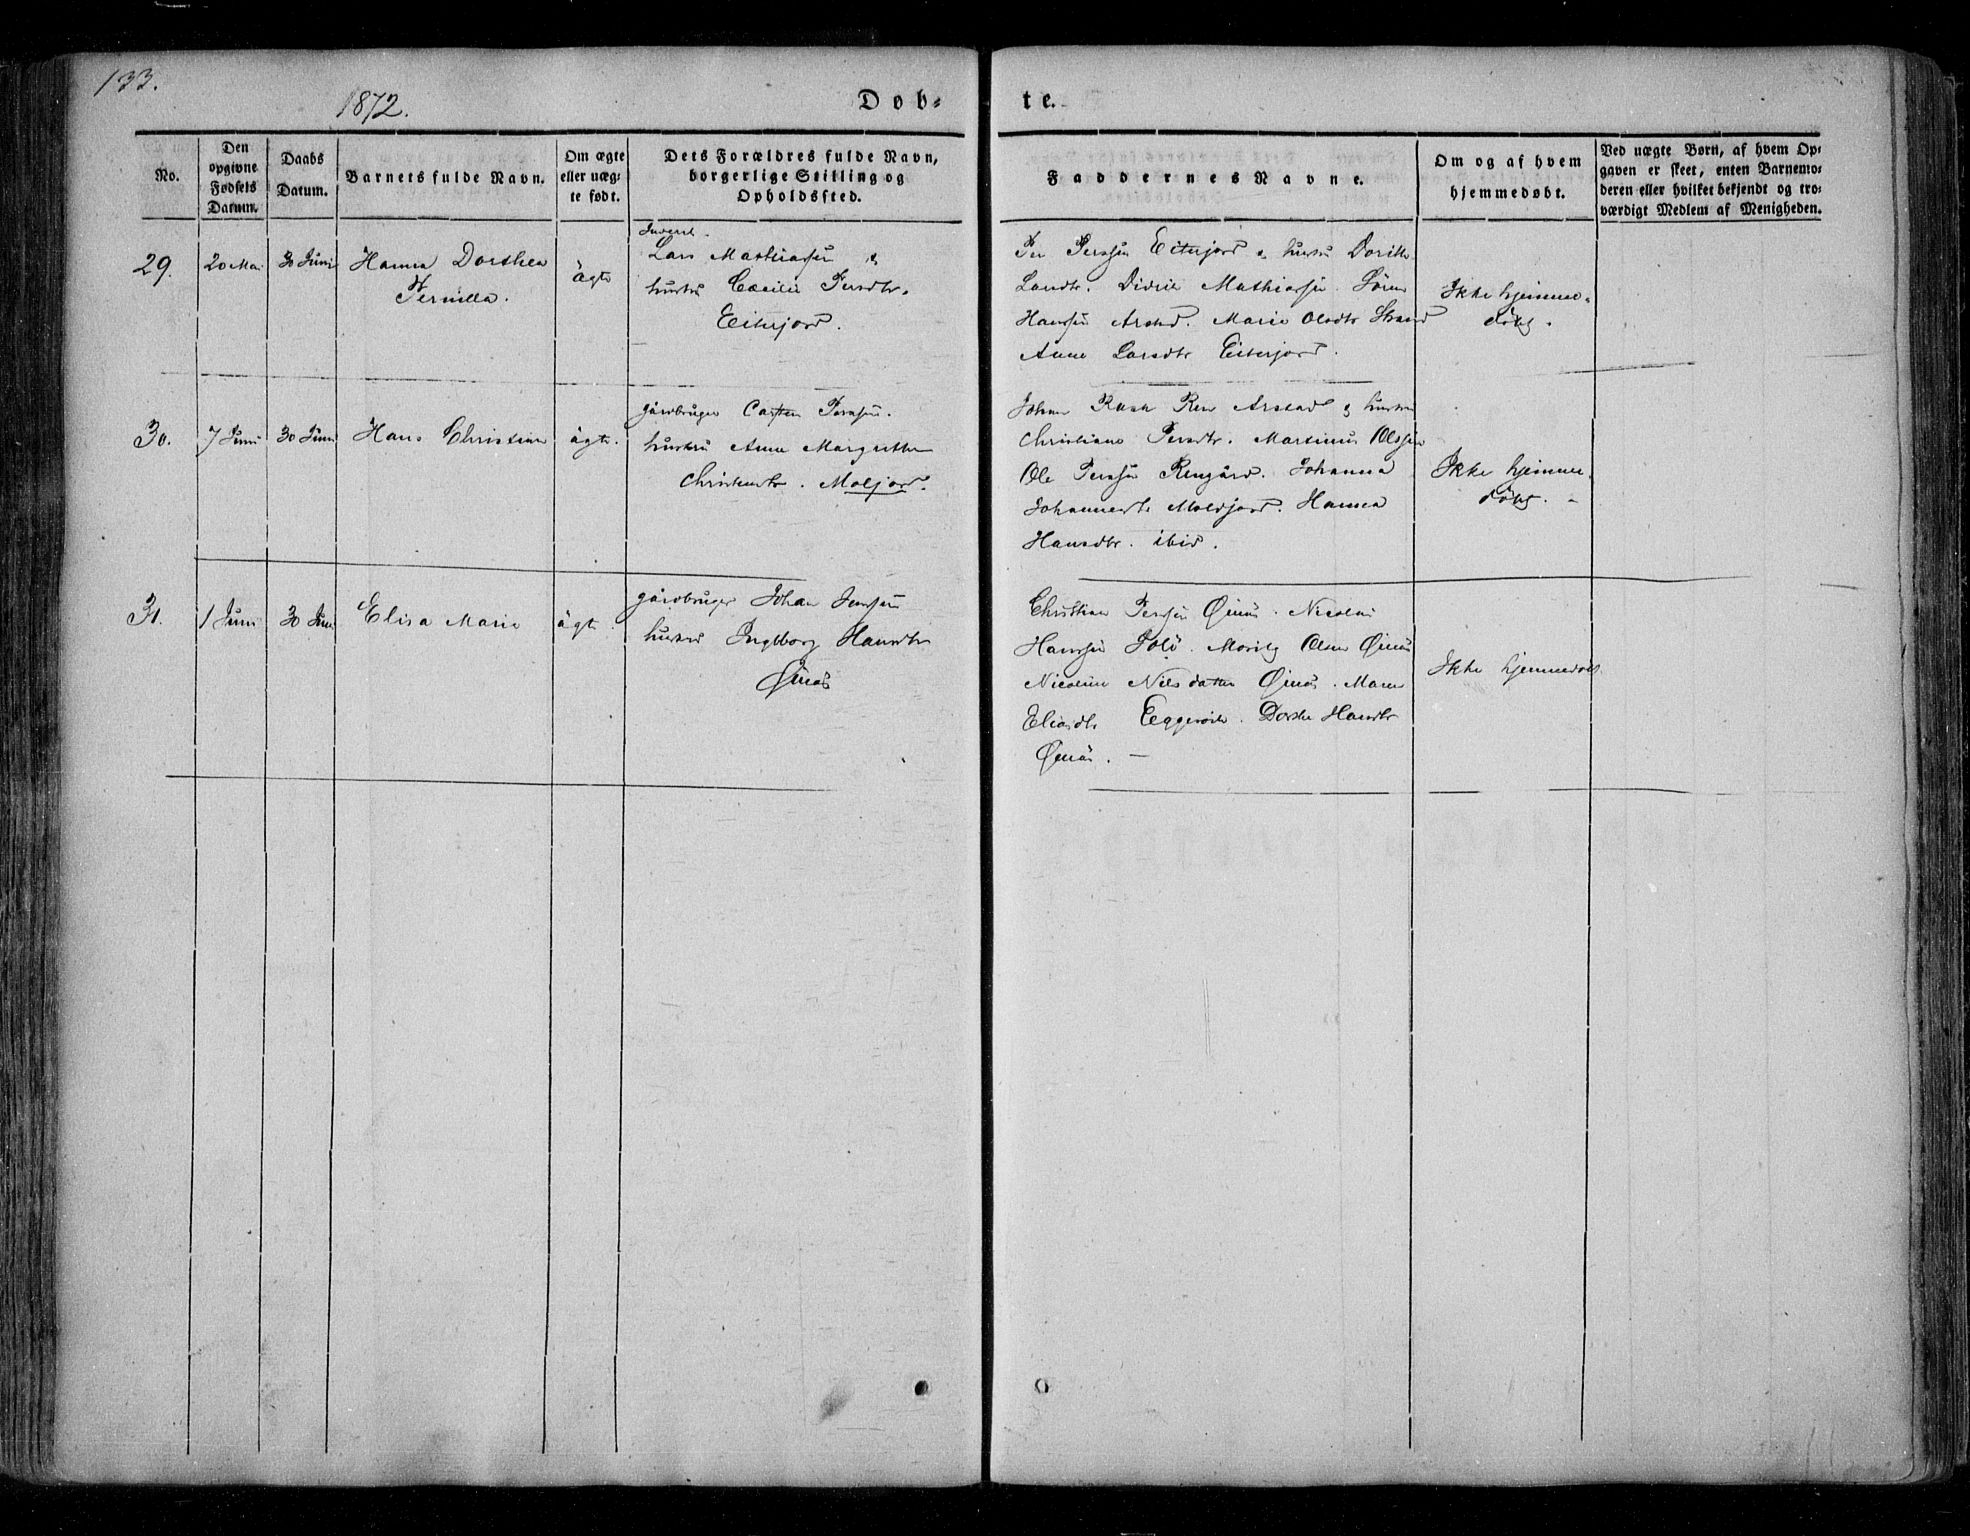 133.
1872.
Døb-
te.
No.
Den opgivne Fødsels Datum.
Daabs Datum.
Barnets fulde Navn.
Om ægte eller uægte født.
Dets Forældres fulde Navn, borgerlige Stilling og Opholdssted.
Faddernes Navne.
Om og af hvem hjemmedøbt.
Ved uægte Børn, af hvem Opgaven er skeet, enten Barnemoderen eller hvilket bekjendt og troværdigt Medlem af Menigheden.
29.
20 Mai
30 Juni
Hanna Dorthea
Pernilla.
ägte
Inderst.
Lars Mathiassen &
hustru Cecilie Persdtr.
Eiterjord.
Per Persen Eiterjord & hustru Dorthe
Larsdtr. Didrik Mathiassen. Sören
Hansen Arstad. Marie Olsdtr Strand
Anne Larsdtr Eiterjord.
Ikke hjemme-
döbt.
30.
7 Juni
30 Juni
Hans Christian
ägte.
gårdbruger Carsten Persen.
hustru Anne Margrethe
Christensdtr. Moljord.
Johan Rask Arstad & hustru
Christiane Persdtr. Martinus Olsen
Ole Persen Rengård. Johanna
Johannesdtr Moldjord. Hanna
Hansdtr. ibid.
Ikke hjemme
döbt. -
31.
1 Juni
30 Juni
Elisa Marie
ägte
gårdbruger Johan Jensen
hustru Ingeborg Hansdtr
Øinäs
Christian Persen Øinäs. Nicolai
Hansen Moritz Olsen Øinäs
Nicoline Nilsdatter Øinäs. Maren
Eliasdtr. Dorthe Hansdtr
Øinäs. —
Ikke hjemmedöbt.